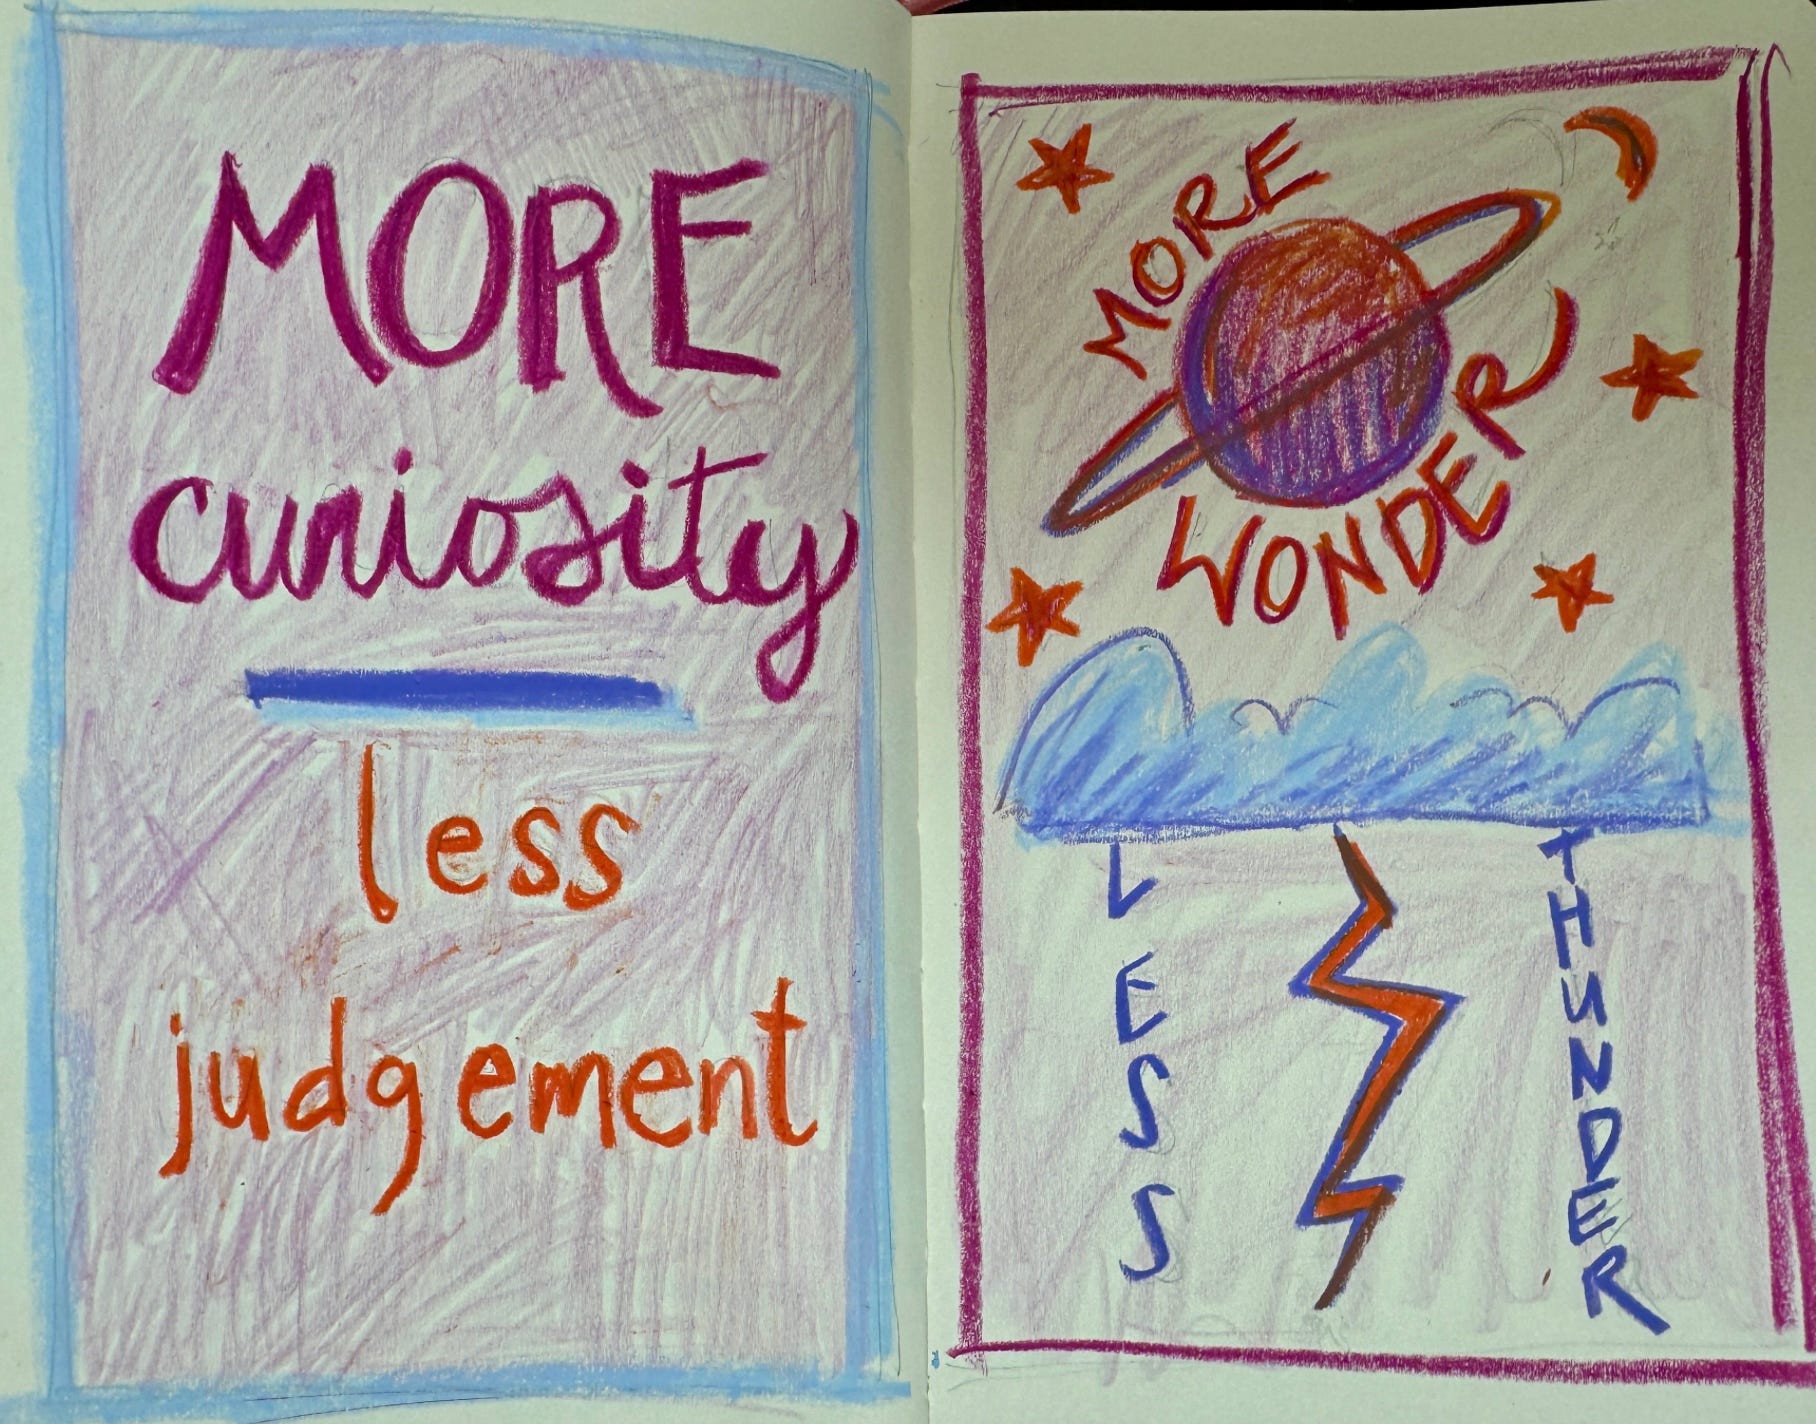 MORE
curiosity
less
judgement
MORE
WONDER
LESS
THUNDER